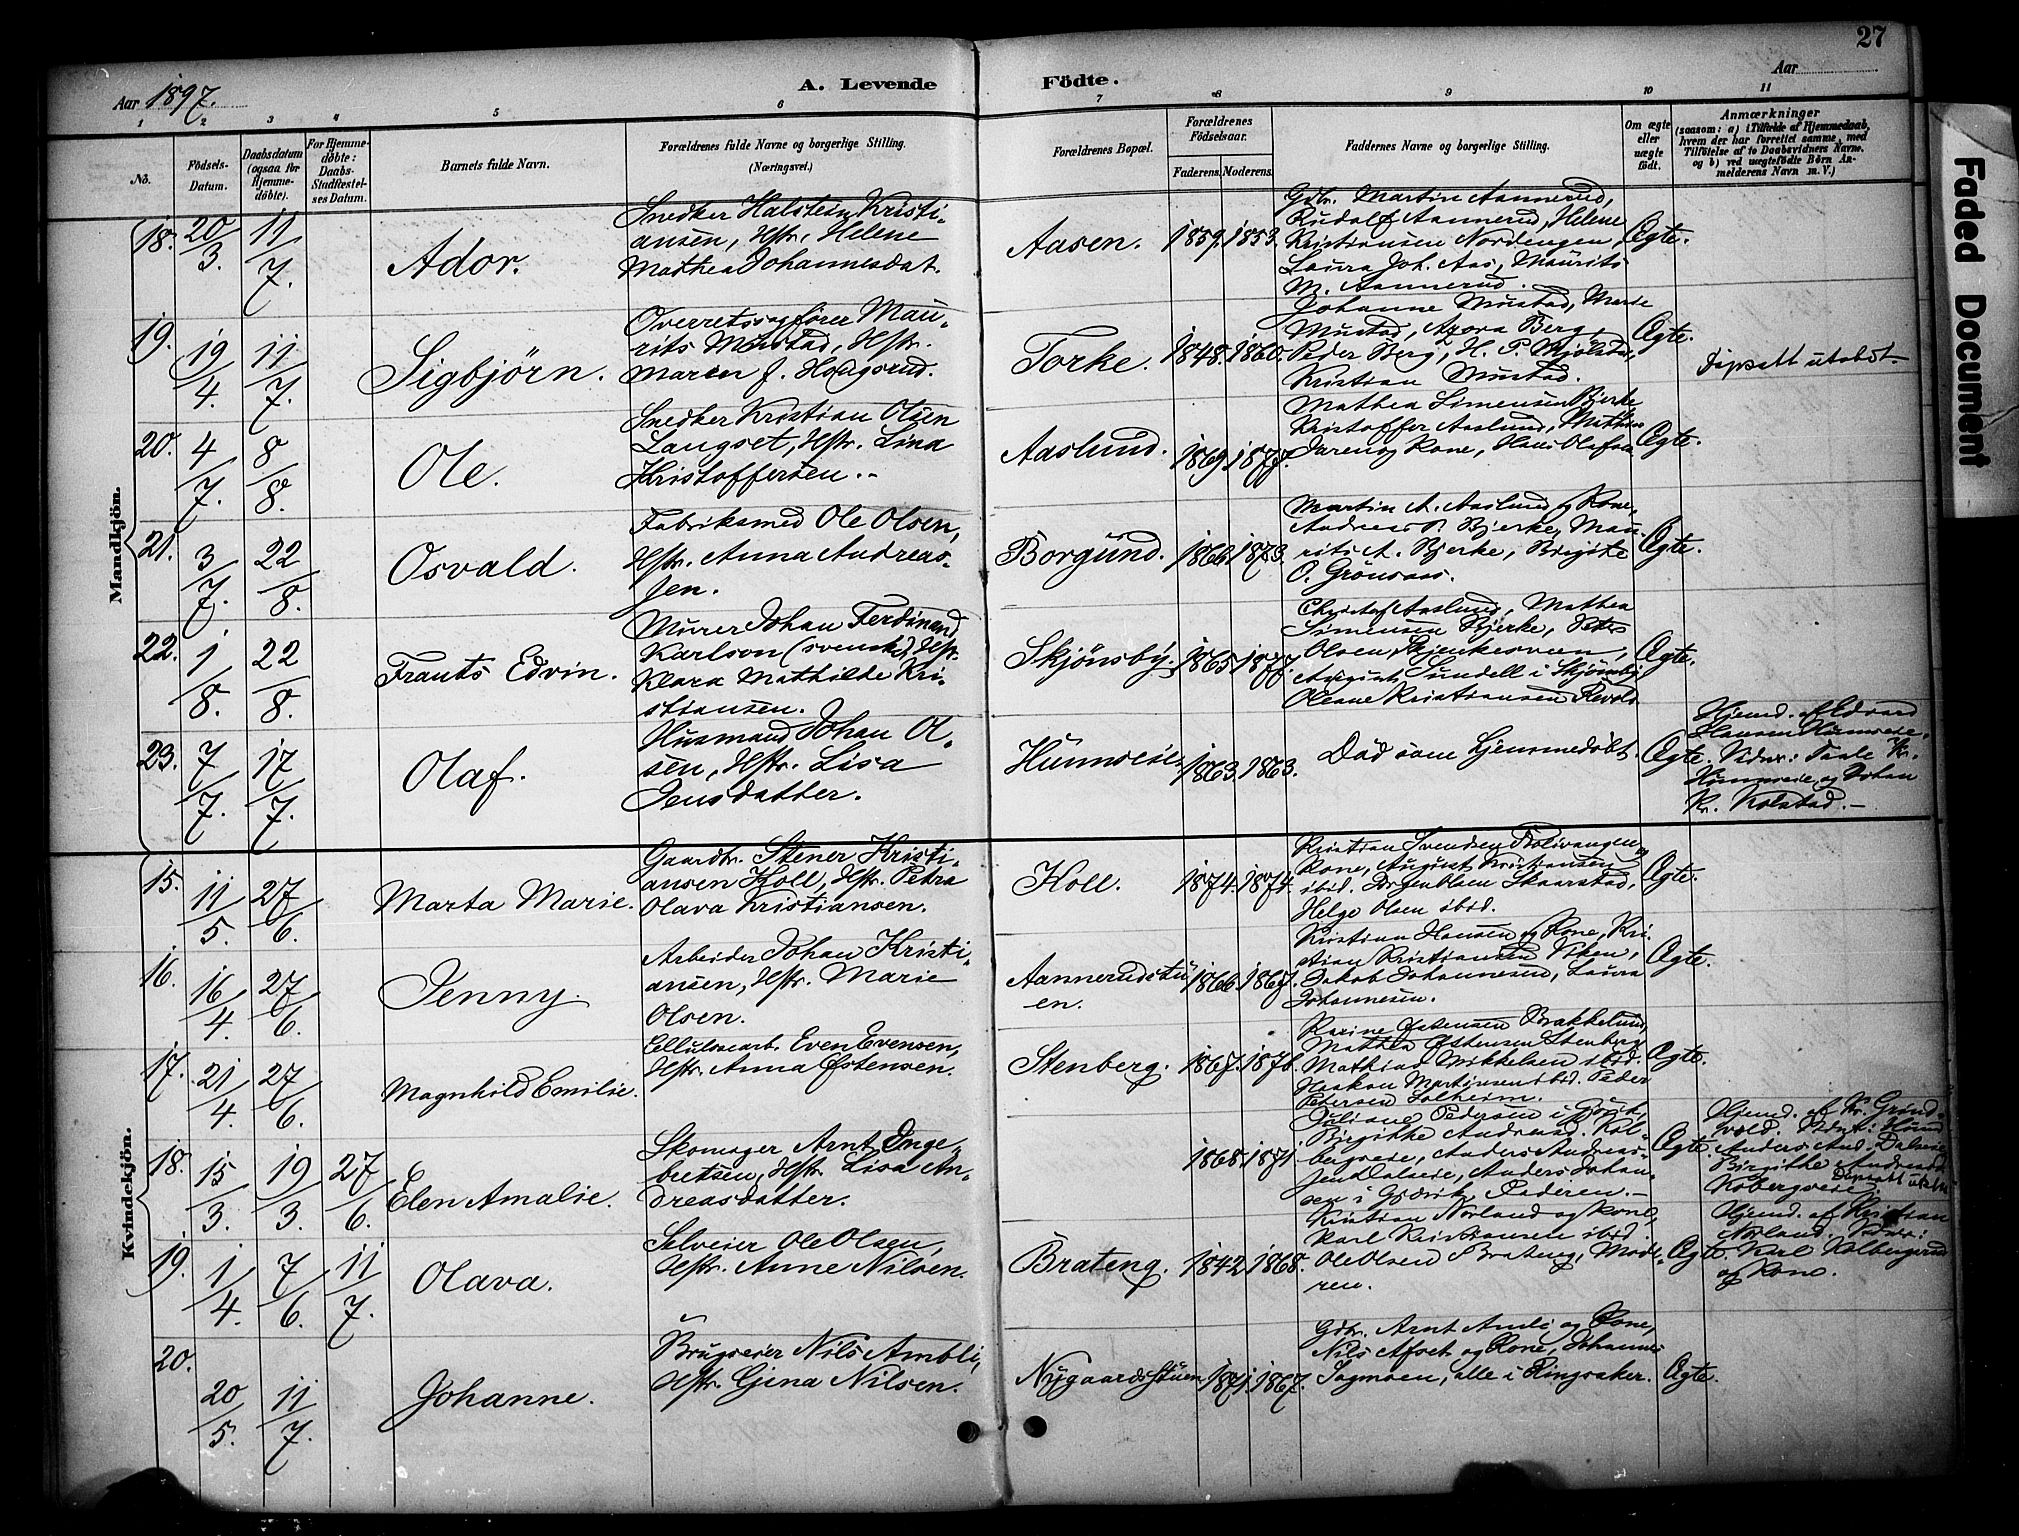 27
Aar 1897.
A. Levende Födte.
Aar
1 2 3 4 5 6 7 8 9 10 11
No.
Födsels-Datum.
Daabsdatum (ogsaa for Hjemme-döbte).
For Hjemme-döbte: Daabs-Stadfæstel-ses Datum.
Barnets fulde Navn.
Forældrenes fulde Navne og borgerlige Stilling. (Næringsvei.)
Forældrenes Bopæl.
Forældrenes Födselsaar.
Faderens. Moderens.
Faddernes Navne og borgerlige Stilling.
Om ægte eller uægte födt.
Anmærkninger
(saasom: a) i Tilfælde af Hjemmedaab, hvem der har forrettet samme, med Tilföielse af to Daabsvidners Navne. og b) ved uægtefödte Börn An-melderens Navn m. V.)
Faded Document
Mandkjön.
18. 20/3. 11/7. Ador.
Snedker Halstein Kristi-
ansen, Hstr. Helene
Mathea Johannesdat.
Aasen. 1859. 1853.
Gdbr. Martin Aannerud,
Rudolf Aannerud, Helene
Kristiansen Nordengen,
Laura Joh. Aas, Maurits
M. Aannerud.
Ægte.
19. 19/4. 11/7. Sigbjörn.
Overretssagförer Mau-
rits Mustad, Hstr.
Maren f. Haugsrud.
Torke. 1848. 1860.
Johanne Mustad, Marie
Mustad, Azora Berg,
Peder Berg, H. P. Mjölstad,
Kristian Mustad.
Ægte.
Dipsatt utstedt
20. 4/7. 8/8. Ole.
Snedker Kristian Olsen
Langset, Hstr. Lina
Kristoffersen.
Aaslund. 1869. 1877.
Mathea Simensen Bjerke
Kristoffer Aaslund,
og Kone, Hans
Ægte.
21. 3/7. 22/8. Osvald.
Fabriksmed Ole Olsen,
Hstr. Anna Andreas-
sen.
Borgund. 1866. 1873.
Martin A. Aaslund og Kone,
Andreas P. Bjerke, Mau-
rits A. Bjerke, Birgite
O. Grönsaas.
Ægte.
22. 1/8. 22/8. Frants Edvin.
Murer Johan Ferdinand
Karlson (svensk), Hstr.
Klara Mathilde Kri-
stiansen.
Skjönsby. 1865. 1877.
Aaslund, Mathea
Simensen Bjerke, Peter
Olsen Skjenkesveen,
August Sundell i Skjönsby,
Oleane Kristiansen
Ægte.
23. 7/7. 17/7. Olaf.
Husmand Johan Ol-
sen, Hstr. Lisa
Jensdatter.
Hunnseie. 1863. 1863.
Död som hjemmedöbt.
Ægte.
Hjemd. af Edvard
Hansen Hunnseie.
Vidner:
Hunnseie og Johan
Kr. Kolstad.
Kvindekjön.
15. 11/5. 27/6. Marta Marie.
Gaardbr. Stener Kristi-
ansen Koll, Hstr. Petra
Olava Kristiansen.
Koll. 1874. 1874.
Kristian Svendsen og
Kone, August Kristiansen
ibid. Jörgen Olsen Skaarstad,
Helge Olsen ibid.
Ægte.
16. 16/4. 27/6. Jenny.
Arbeider Johan Kristi-
ansen, Hstr. Marie
Olsen.
Aannerudstu
en. 1866. 1867.
Kristian Hansen og Kone, Kri-
stian Kristiansen Viken,
Jakob Johannesen, Laura
Johannesen.
Ægte.
17. 21/4. 27/6. Magnhild Emilie.
Cellulosearb. Even Evensen,
Hstr. Anna Østensen.
Stenberg. 1867. 1876.
Karine Østensen Brakkelund,
Mathea Østensen Stenberg
Mathias Mikkelsen ibid.
Haakon Martinsen ibid. Peder
Petersen Solheim.
Ægte.
18. 15/3. 19/3. 27/6. Elen Amalie.
Skomager Arnt Enge-
bretsen, Hstr. Lisa An-
dreasdatter.
1868. 1871.
Juliane Pedersen i Gjövik,
Birgithe Andreasd. Kol-
bergseie, Anders Andreas-
sen Dalseie, Anders Johan-
sen i Gjövik, Faderen.
Ægte.
Hjemd. af Kr. Grönd-
vold. Vidnr:
Anders And. Dalseie
Birgithe Andreasd.
Kolbergseie.
Dipsatt
19. 1/4. 7/6. 11/7. Olava.
Selveier Ole Olsen,
Hstr. Anne Nilsen.
Brateng. 1842. 1868.
Kristian Norland og Kone,
Karl Kristiansen ibid.
Ole Olsen Brateng, Mode-
ren.
Ægte.
Hjemd. af Kristian
Norland. Vidner:
Karl Kolbergsrud
og Kone.
20. 20/5. 11/7. Johanne.
Brugseier Nils Ambli,
Hstr. Gjena Nilsen.
Nygaardsstuen. 1871. 1867.
Gdbr. Arnt Amli og Kone,
Nils og Kone, Johannes
Sagmoen, alle i Ringsaker.
Ægte.